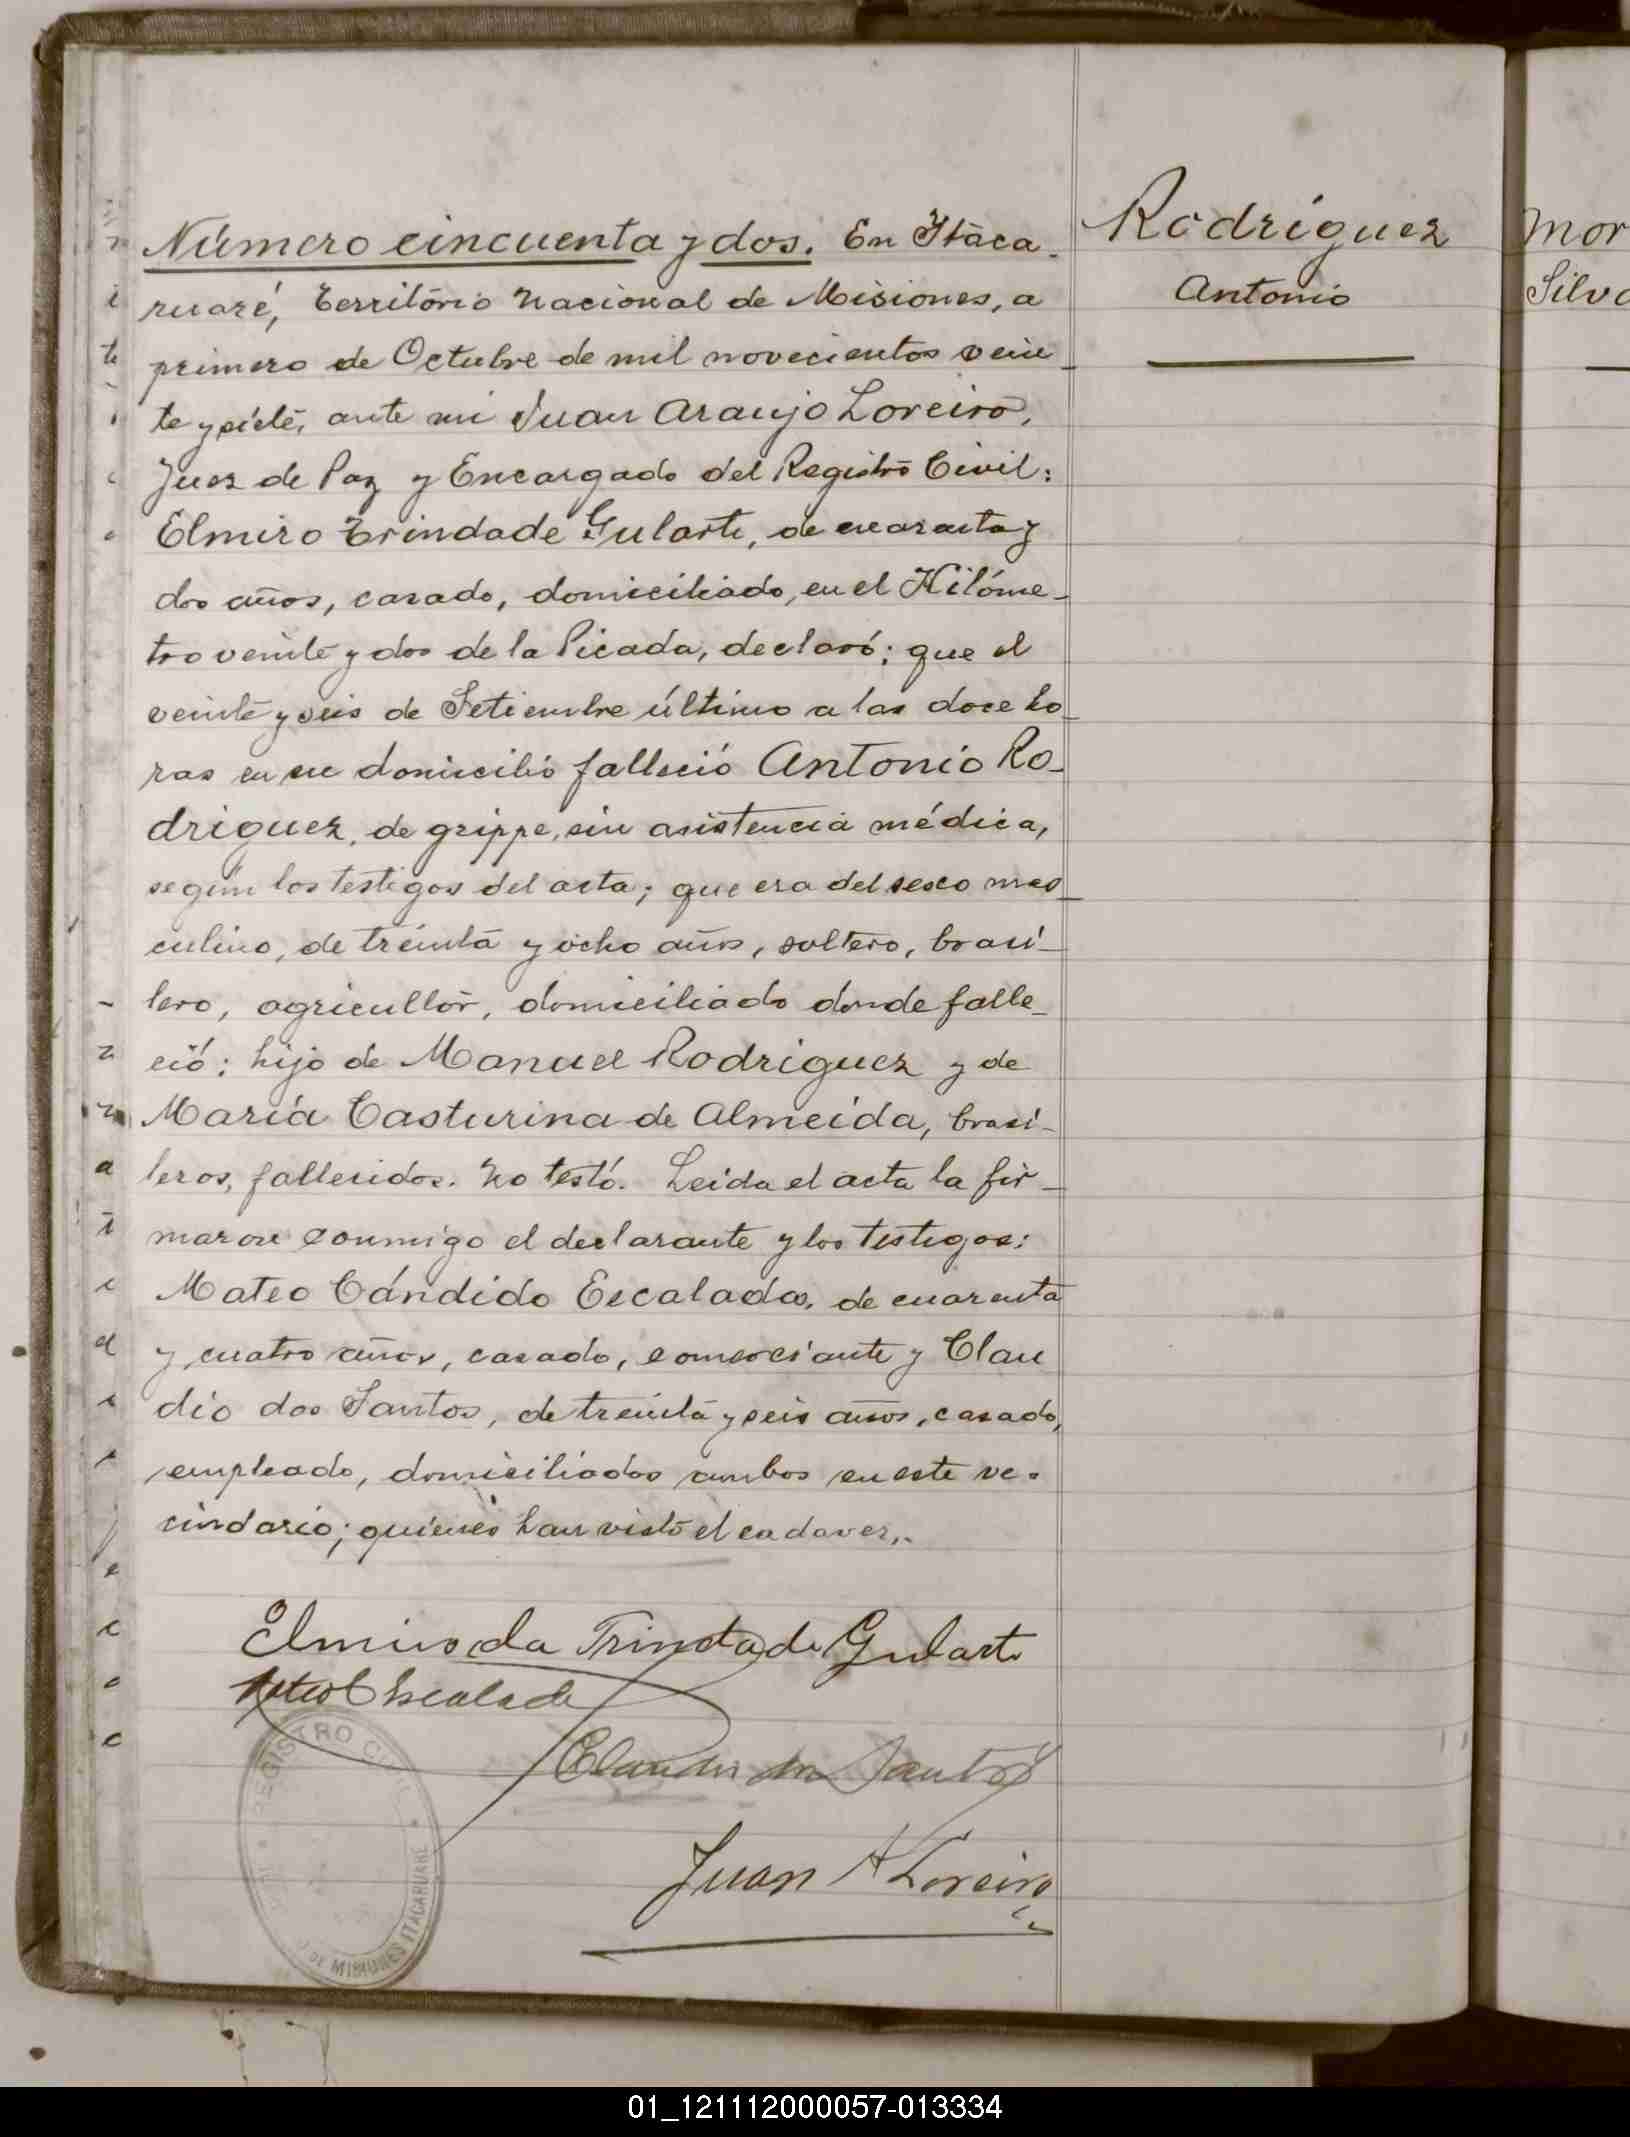 Número cincuenta y dos. En Itaca-
ruaré, Territorio Nacional de Misiones, a
primero de Octubre de mil novecientos vein-
te y siete, ante mi Juan Araujo Loreiro,
Juez de Paz y Encargado del Registro Civil:
Elmiro Trindade Gularte, de cuarenta y
dos años, casado, domiciliado, en el Kilóme-
tro veinte y dos de la Picada, declaró: que el
veinte y seis de Setiembre último a las doce ho-
ras en su domicilio falleció Antonio Ro-
driguez, de grippe, sin asistencia médica,
según los testigos del acta; que era del sexo mas-
culino, de treinta y ocho años, soltero, brasi-
lero, agricultor, domiciliado donde falle-
ció; hijo de Manuel Rodriguez y de
María Casturina de Almeida, brasi-
leros, fallecidos. No testó. Leida el acta la fir-
maron conmigo el declarante y los testigos:
Mateo Cándido Escalada, de cuarenta
y cuatro años, casado, comerciante y Clau
dio dos Santos, de treinta y seis años, casado,
empleado, domiciliados ambos en este ve-
cindario; quienes han visto el cadaver.
Elmiro da Trindade Gularte
Mateo C Escalada
Claudio dos Santos
Juan A Loreiro
REGISTRO CIVIL
DE MISIONES ITACARUARÉ
Rodríguez
Antonio
Mor
Silva
01_121112000057-013334